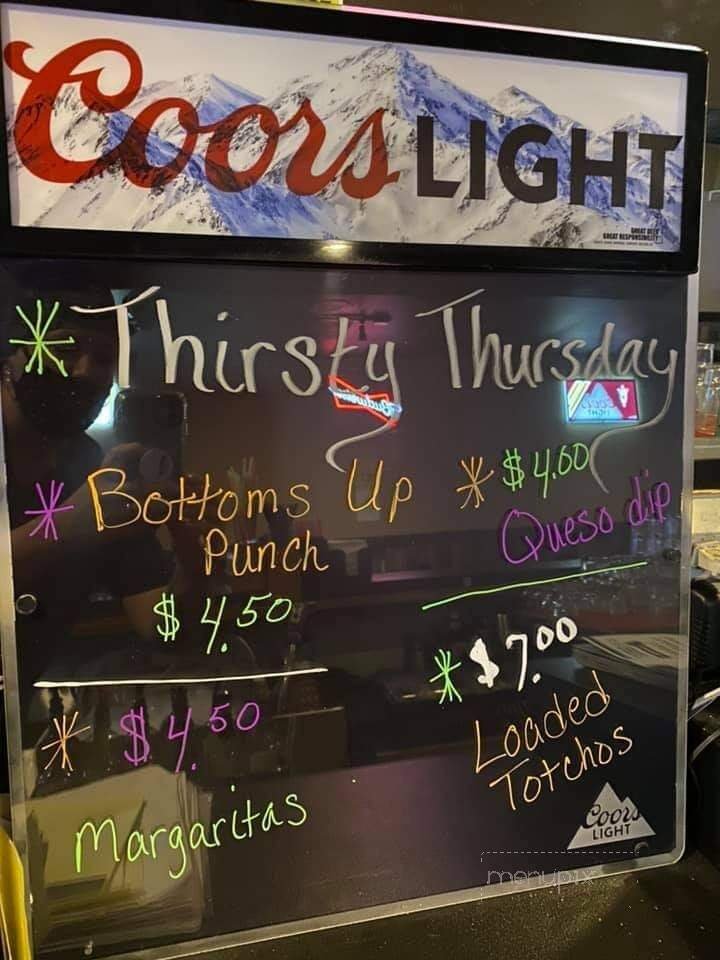 Coors LIGHT
GREAT BEER
GREAT RESPONSIBILITY
* Thirsty Thursday
* Bottoms Up
Punch
$4.50
* $4.50
Margaritas
* $4.00
Queso dip
* $7.00
Loaded
Totchos
Coors
LIGHT
menupix